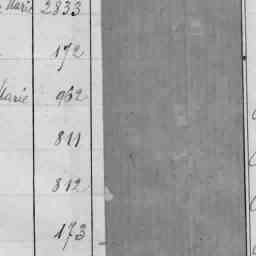 Marie 2833
172
Marie 962
811
812
173